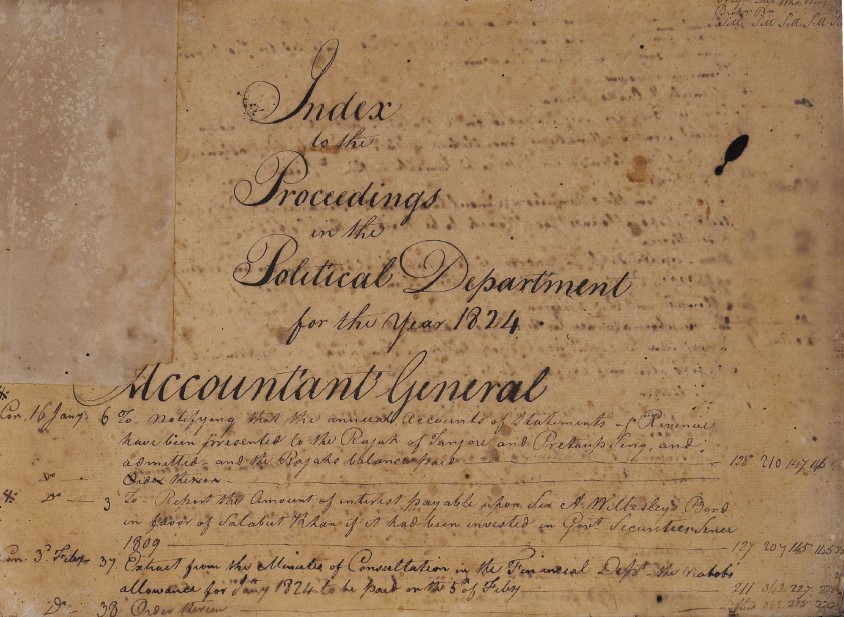 Sill. Sill Sill. Sill
Index
to the
Proceedings
in the
Political Department
for the Year 1824.
Accountant General
Con. 16 Jany. 6 To Notifying that the annual Accounts of Statements of Revenue
have been presented to the Rajah of Tanjore and Pretaup Sing, and
admitted and the Rajahs balance paid 128 210 147 146
Do Order thereon
Do 3 To Report the Amount of interest payable upon Sir A Wellesley's Bond
in favor of Salabut Khan if it had been invested in Govt Securities Since
1809 127 207 145 145
Con. 3d Feby 37 Extract from the Minutes of Consultation in the Financial Dept. the Nabobs
allowance for Jany 1824 to be paid on the 5th of Feby 211 342 227
Do 38 Order thereon